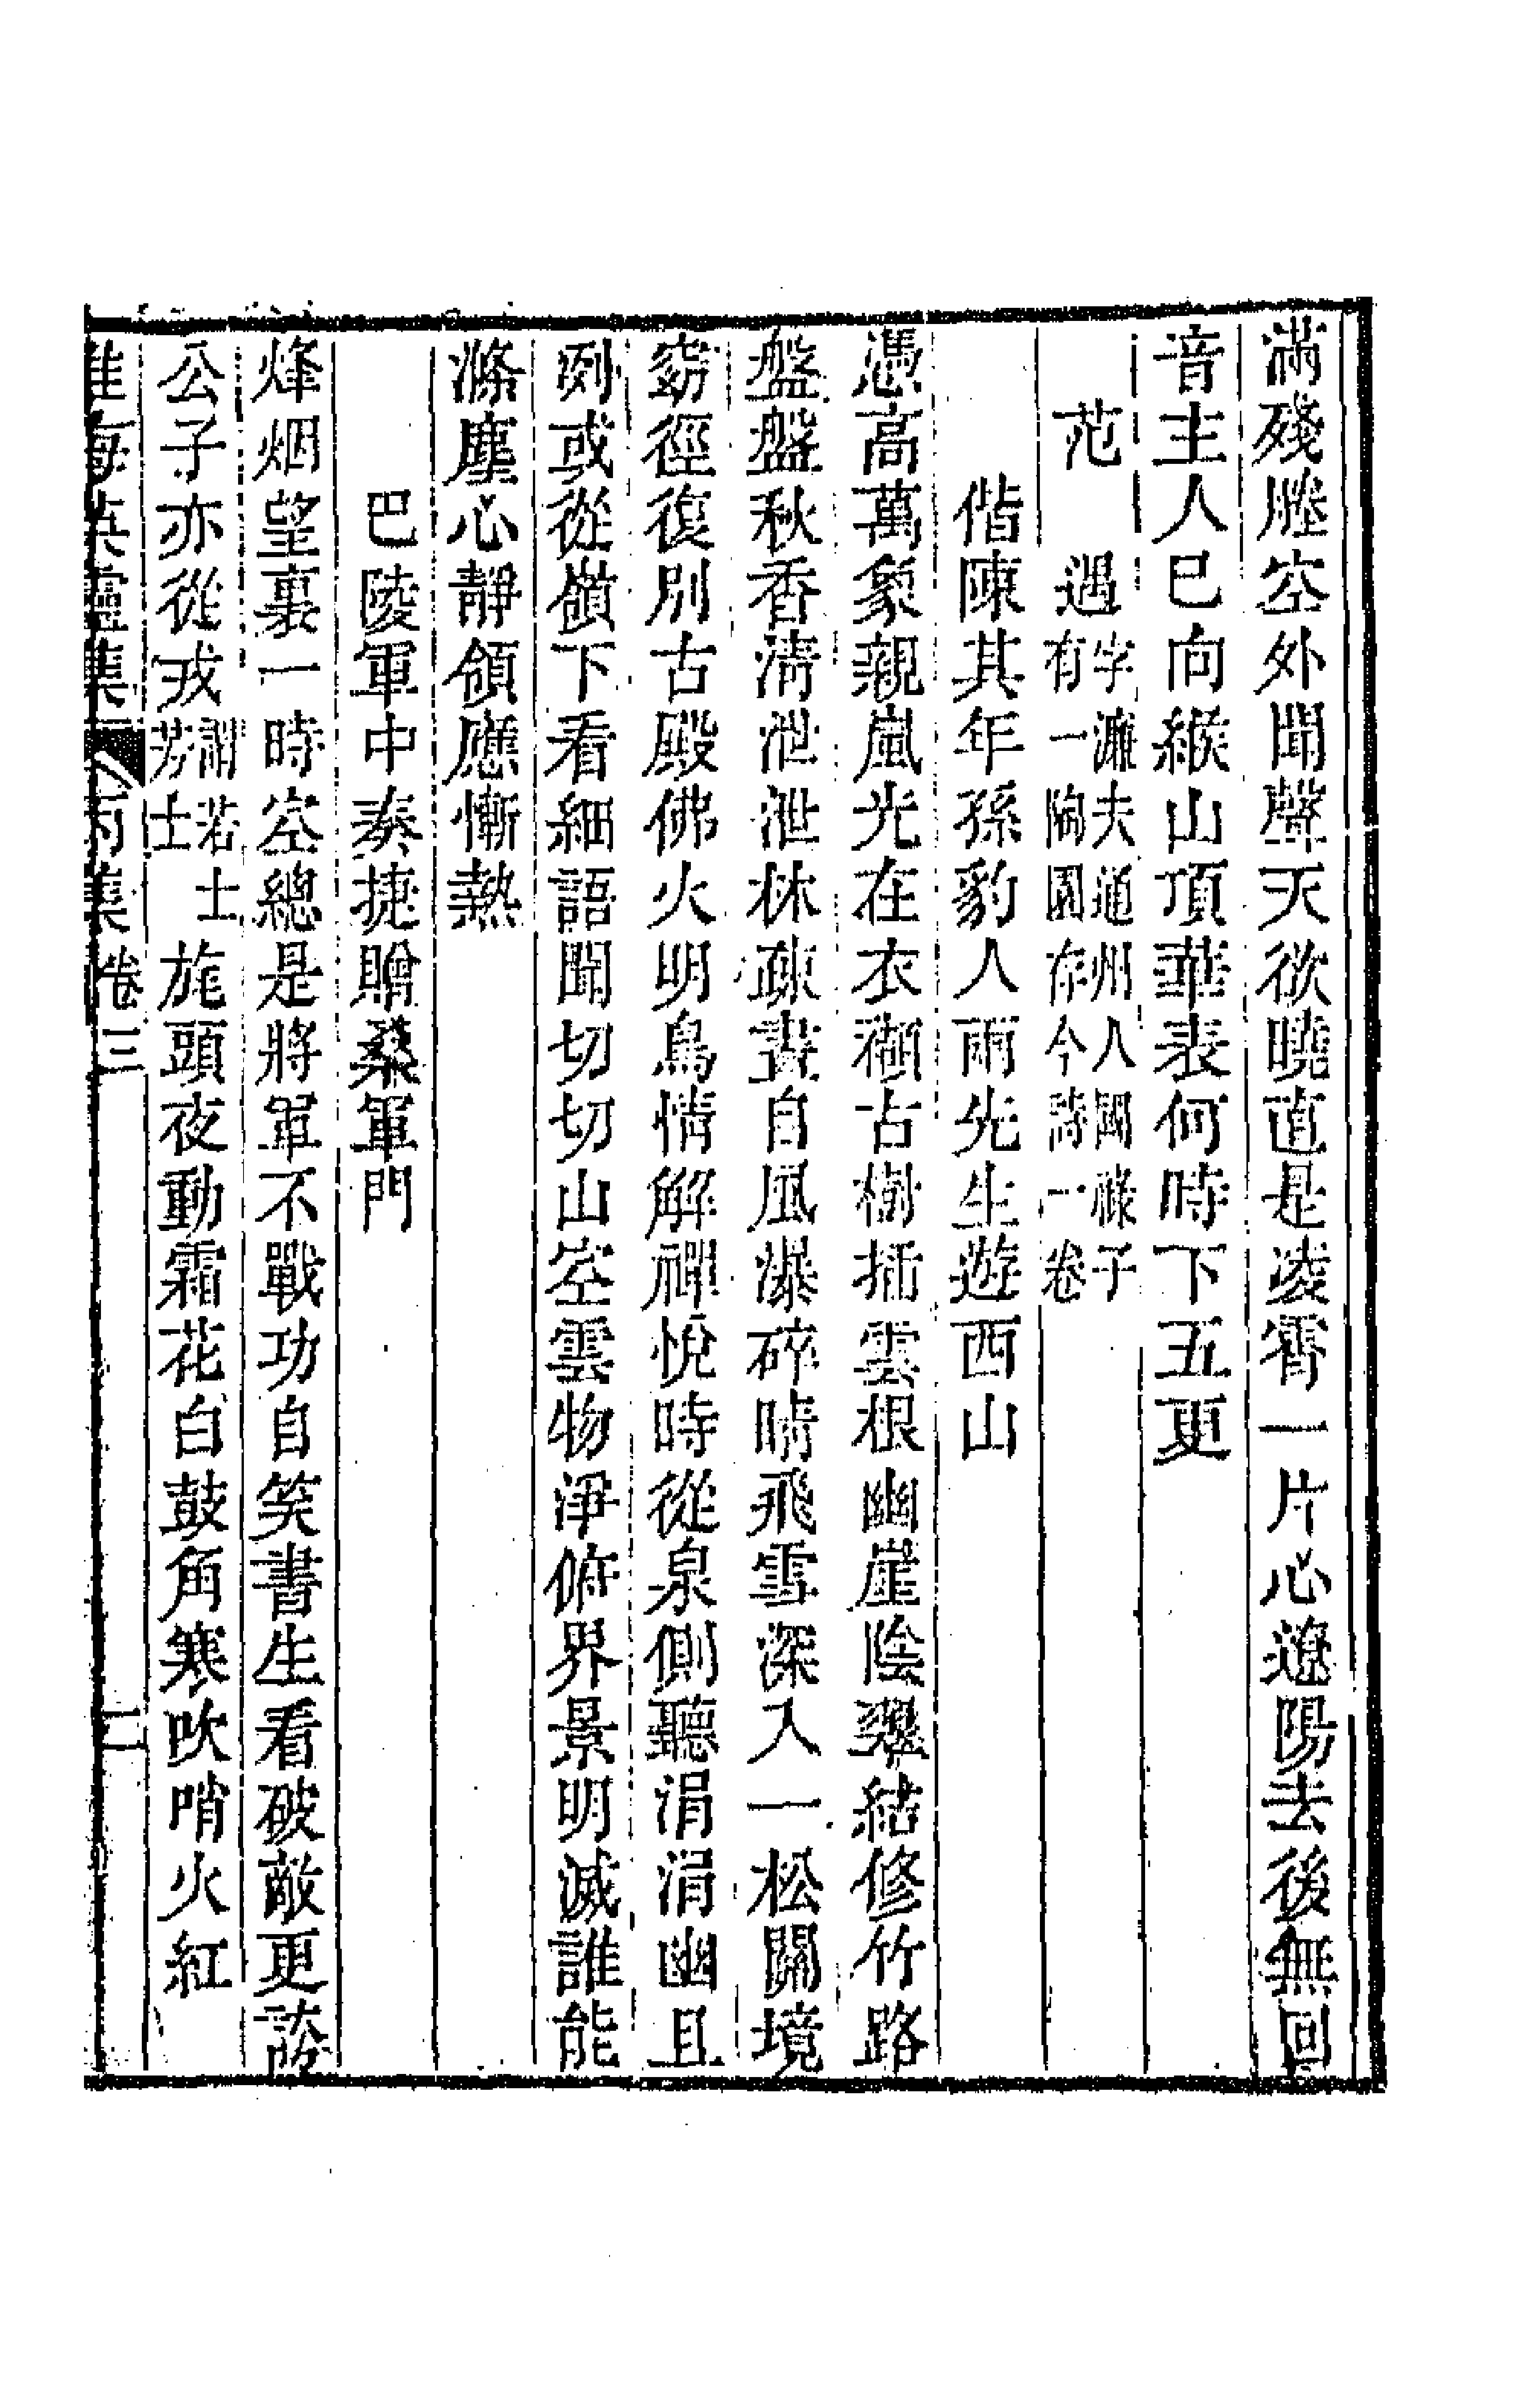 滿殘塍空外聞聲天欲曉直是凌霄一片心遼陽去後無回
音主人巳向緱山頂華表何時下五更
范　遇字濂夫通州人國祿子有一陶園存今詩一卷
偕陳其年孫豹人兩先生遊西山
憑高萬象親嵐光在衣襭古樹插雲根幽崖陰翠結修竹路
盤盤秋香清泄泄林疎晝自風瀑碎晴飛雪深入一松關境
窈徑復別古殿佛火明鳥情解禪悅時從泉側聽涓涓幽且
冽或從嶺下看細語聞切切山空雲物淨俯界景明滅誰能
滌塵心靜領應慚熱
巴陵軍中奏捷贈桑軍門
烽烟望裏一時空總是將軍不戰功自笑書生看破敵更誇
公子亦從戎謂若士芴士旄頭夜動霜花白鼓角寒吹哨火紅
淮海英靈集　丙集卷三　二